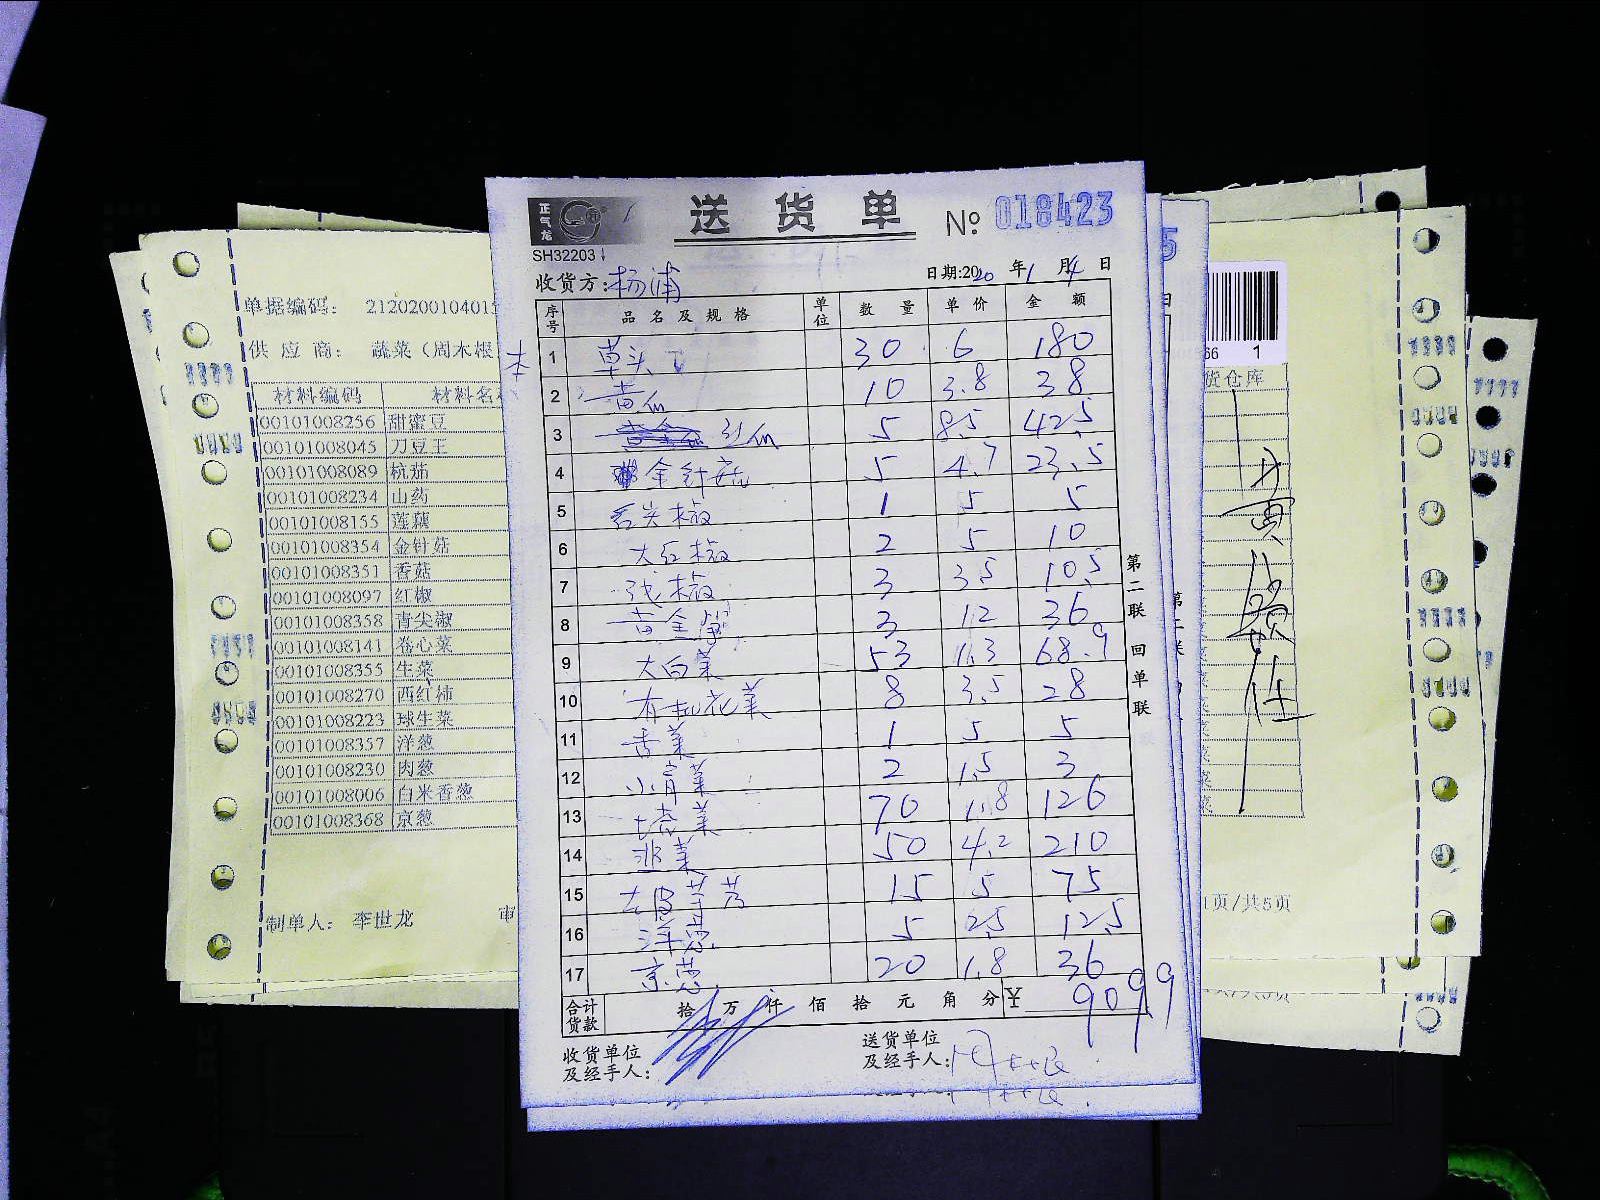 正气龙
送货单 № 018423
SH32203
收货方：杨浦 日期:2020年1月4日
序号 品名及规格 单位 数量 单价 金额
1 草头 30 6 180
2 黄瓜 10 3.8 38
3 5 8.5 42.5
4 金针菇 5 4.7 23.5
5 1 5 5
6 大红椒 2 5 10
7 3 3.5 10.5
8 3 12 36
9 大白菜 53 1.3 68.9
10 有机花菜 8 3.5 28
11 香菜 1 5 5
12 小青菜 2 1.5 3
13 70 1.8 126
14 韭菜 50 4.2 210
15 15 5 75
16 洋葱 5 2.5 12.5
17 京葱 20 1.8 36
合计货款 拾 万 仟 佰 拾 元 角 分 ¥ 909.9
收货单位及经手人：
送货单位及经手人：
第二联 回单联
单据编码： 2120200104015
供应商： 蔬菜（周木根
材料编码 材料名
00101008256 甜蜜豆
00101008045 刀豆王
00101008089 杭茄
00101008234 山药
00101008155 莲藕
00101008354 金针菇
00101008351 香菇
00101008097 红椒
00101008358 青尖椒
00101008141 卷心菜
00101008355 生菜
00101008270 西红柿
00101008223 球生菜
00101008357 洋葱
00101008230 肉葱
00101008006 白米香葱
00101008368 京葱
制单人： 李世龙 审
66 1
货仓库
1页/共5页